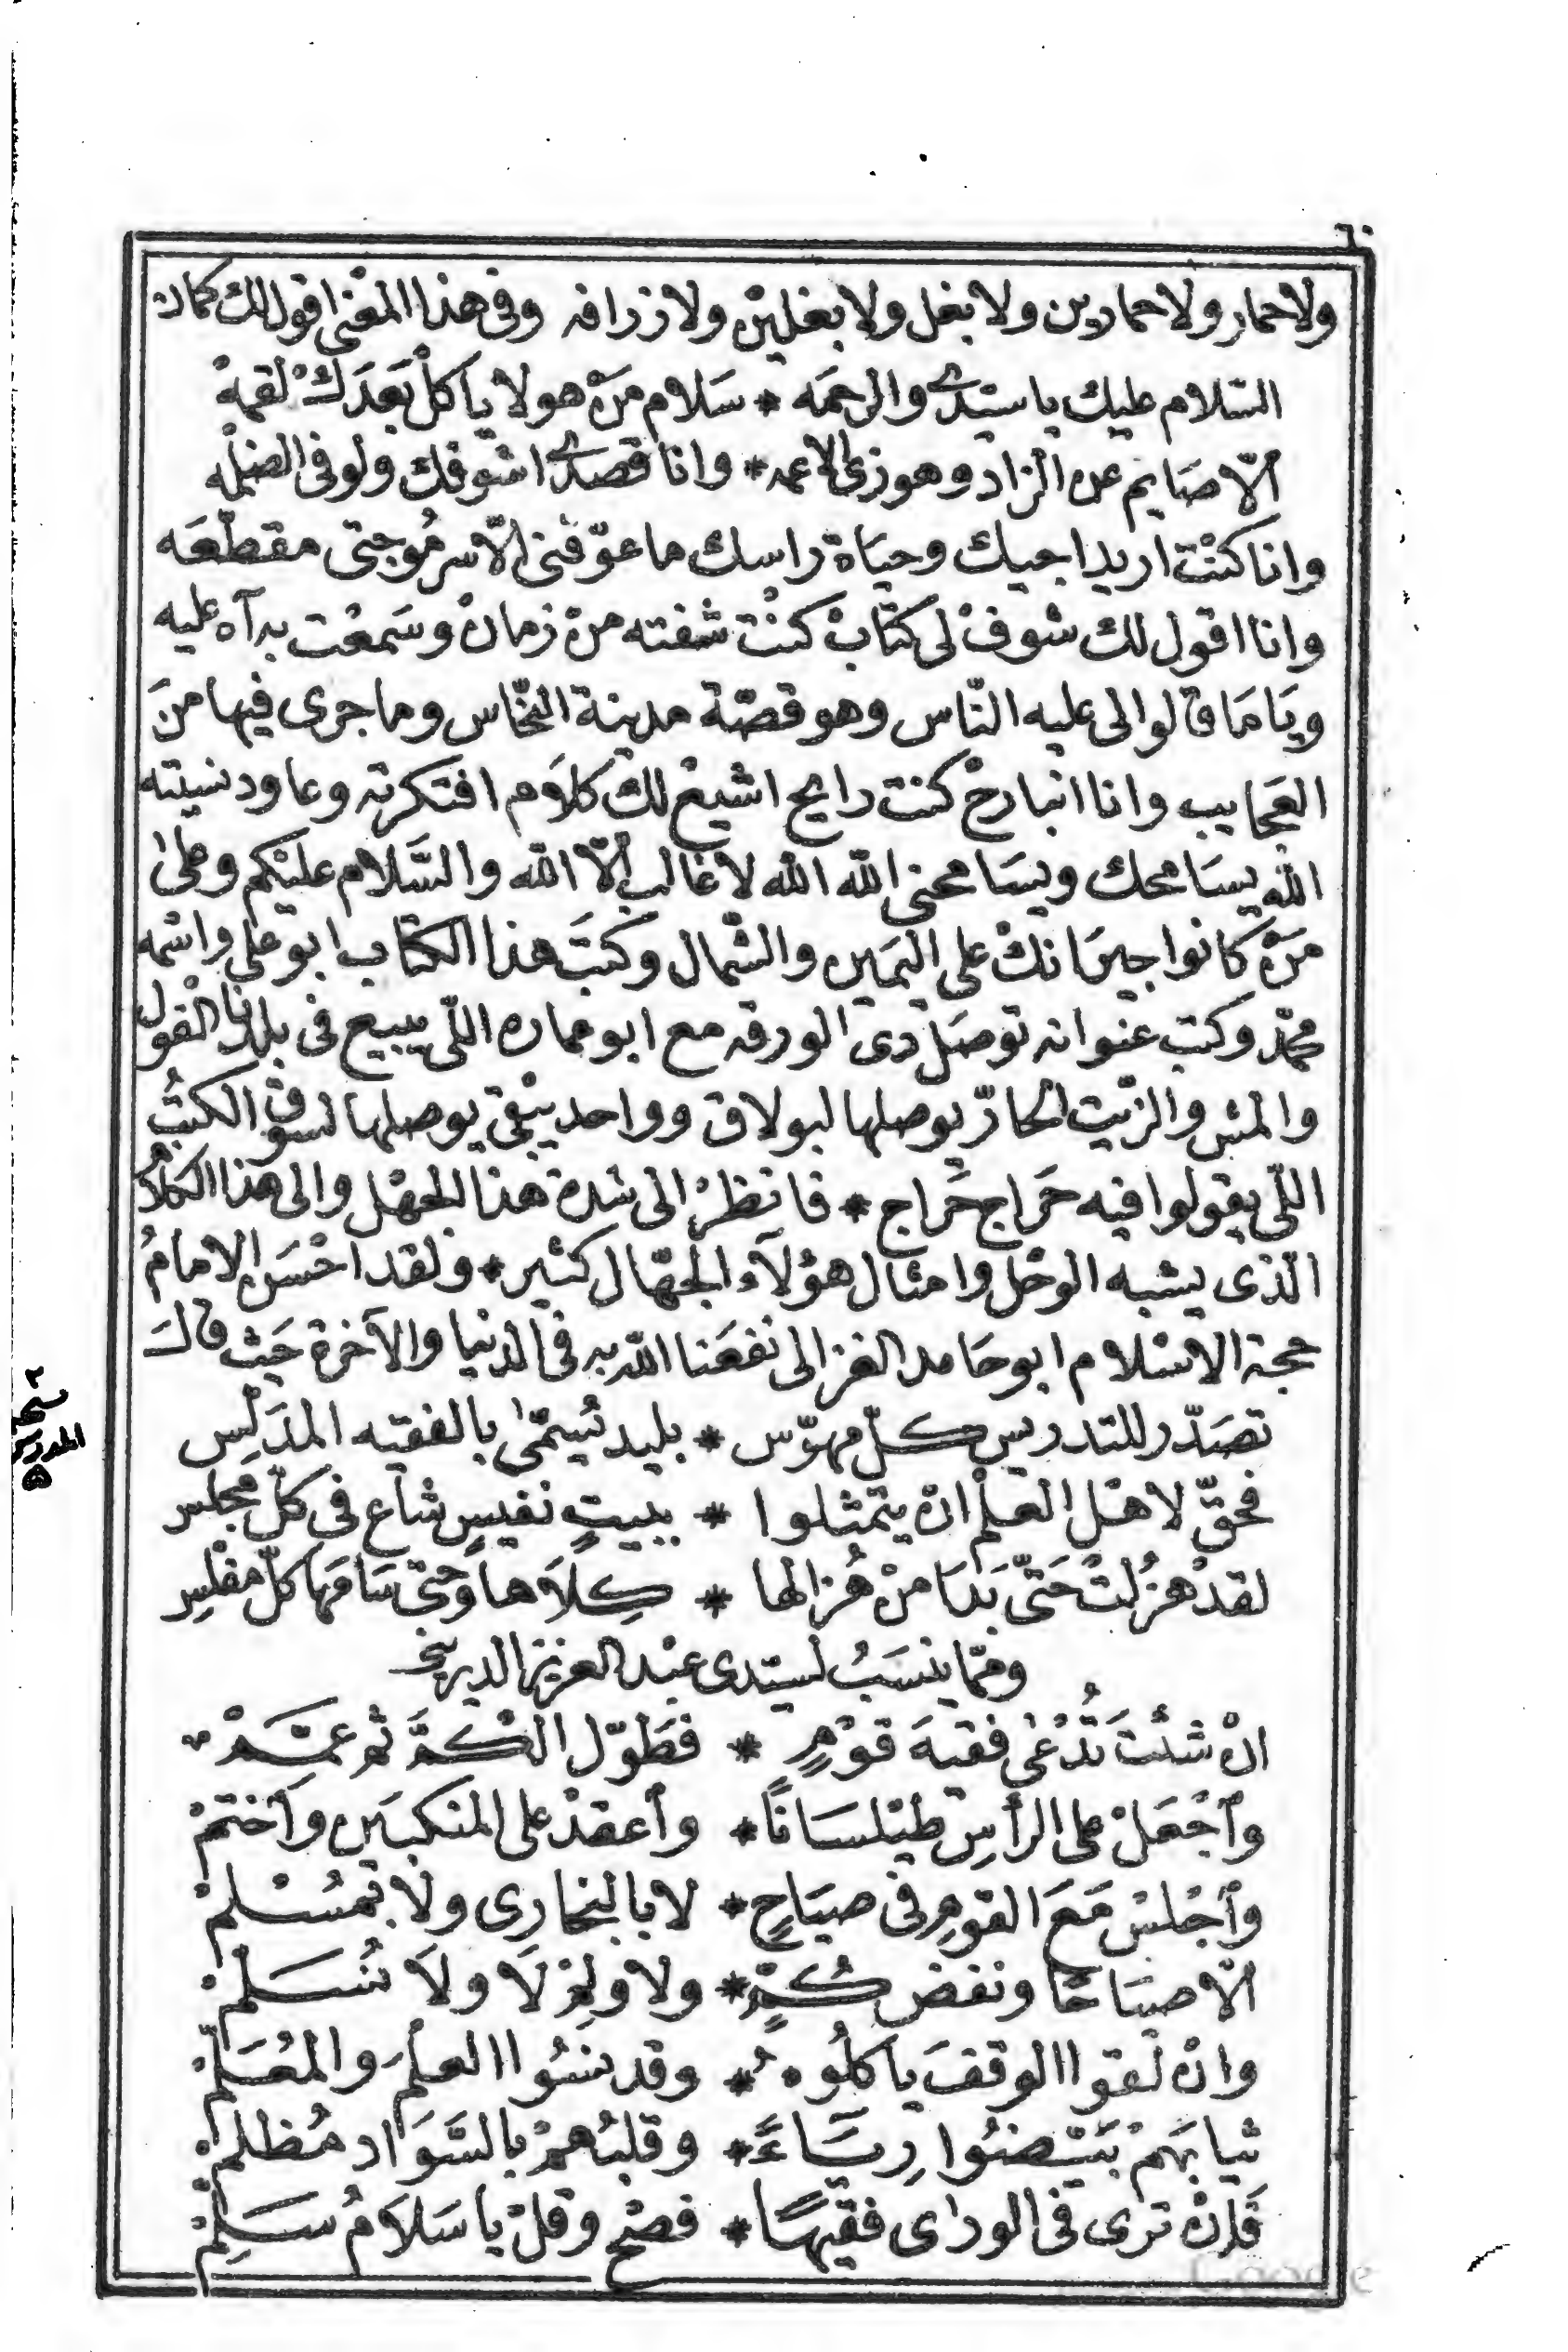 ٦٠
ولا حمار ولا حمارين ولا بغل ولا بغلين ولا زرافه وفى هذا المعْنى اقول لك كمان
السّلام عليك يا سيّدى والرحمَه * سَلام مَنْ هو لا ياكلْ بَعدَكْ لقمهْ
الّا صَايم عن الزاد وهو زىّ الاعمه * وانا قصدى اشوفك ولو فى الضلْمه
وانا كنْت اريد اجيك وحيَاة راسك ما عوّقنى الّا سرمُوجتى مقطّعَه
وانا اقول لك شوفْ لى كتَابْ كنْت شفته منْ زمانْ وسَمعْت به آه عليه
ويَا مَا قالوا لى عليه النّاس وهو قصّة مدينة النحّاس وما جرى فيها منَ
العَجايب وانا انبارحْ كنت رايح اشيعْ لكْ كلاَم افتكرته وعاود نسيته
الله يسَامحك ويسَامحنى الله الله لا غالب الّا الله والسَّلام عليْكم وعلىٰ
مَنْ كانوا جيرَانكْ على اليَمين والشّمال وكتَبَ هذا الكتاب ابو على واسْمه
محمّد وكتب عنوانه توصَل دى الورقه مع ابو عماره اللّى يبيع فى بلدنا الفول
والمش والزّيت الحارّ يوصلها لبولاق وواحد يبْقى يوصلها لسوق الكتُب
اللّى يقولوا فيه حَرَاج حَرَاج * فانظرْ الى شدة هذا الجهْل والى هذا الكلام
الّذى يشبه الوحْل وامثال هؤلآء الجهّال كثير * ولقد احْسَن الامامُ
حجة الاسْلام ابو حامد الغزالى نفعَنا الله به فى الدنيا والآخرة حَيْث قالَ
تصَدّر للتدريس كلّ مهوّس * بليد يُسَمّىٰ بالفقيه المدَرّس
فحقّ لاهْل العلْم انْ يتمثلوا * ببيتٍ نفيسٍ شاع فى كلّ مجلس
لقدْ هزُلتْ حَتّى بَدَا منْ هُزالها * كِلاَها وحتى سَامَها كلّ مفْلِس
وممّا ينسَبُ لسيّدى عبْد العزيز الديرينى
انْ شئْتَ تُدْعٰى فقيهَ قوْمٍ * فطَوّل الكُمَّ ثم عمّمْ
وٱجْعَلْ على الرأسِ طيْلسَانًا * وٱعقدْ على المنكبَين وٱختمْ
وٱجْلسْ مَعَ القومِ فى صيَاحٍ * لا بالبخارى ولا بمُسْلمْ
الّا صيَاحًا ونفض كُمٍّ * ولا ولِمْ لَا ولَا نُسَلّمْ
وانْ لقوا الوقفَ ياكلُوهُ * وقد نسُوا العلْمَ والمُعَلّمْ
ثيابهَمْ بَيّضُوا رِيَاءً * وقلبُهمْ بالسَّوَاد مُظلمْ
فَإنْ ترى فى الوراى فقيهًا * فصْح وقلْ يا سَلامُ سَلِّمْ